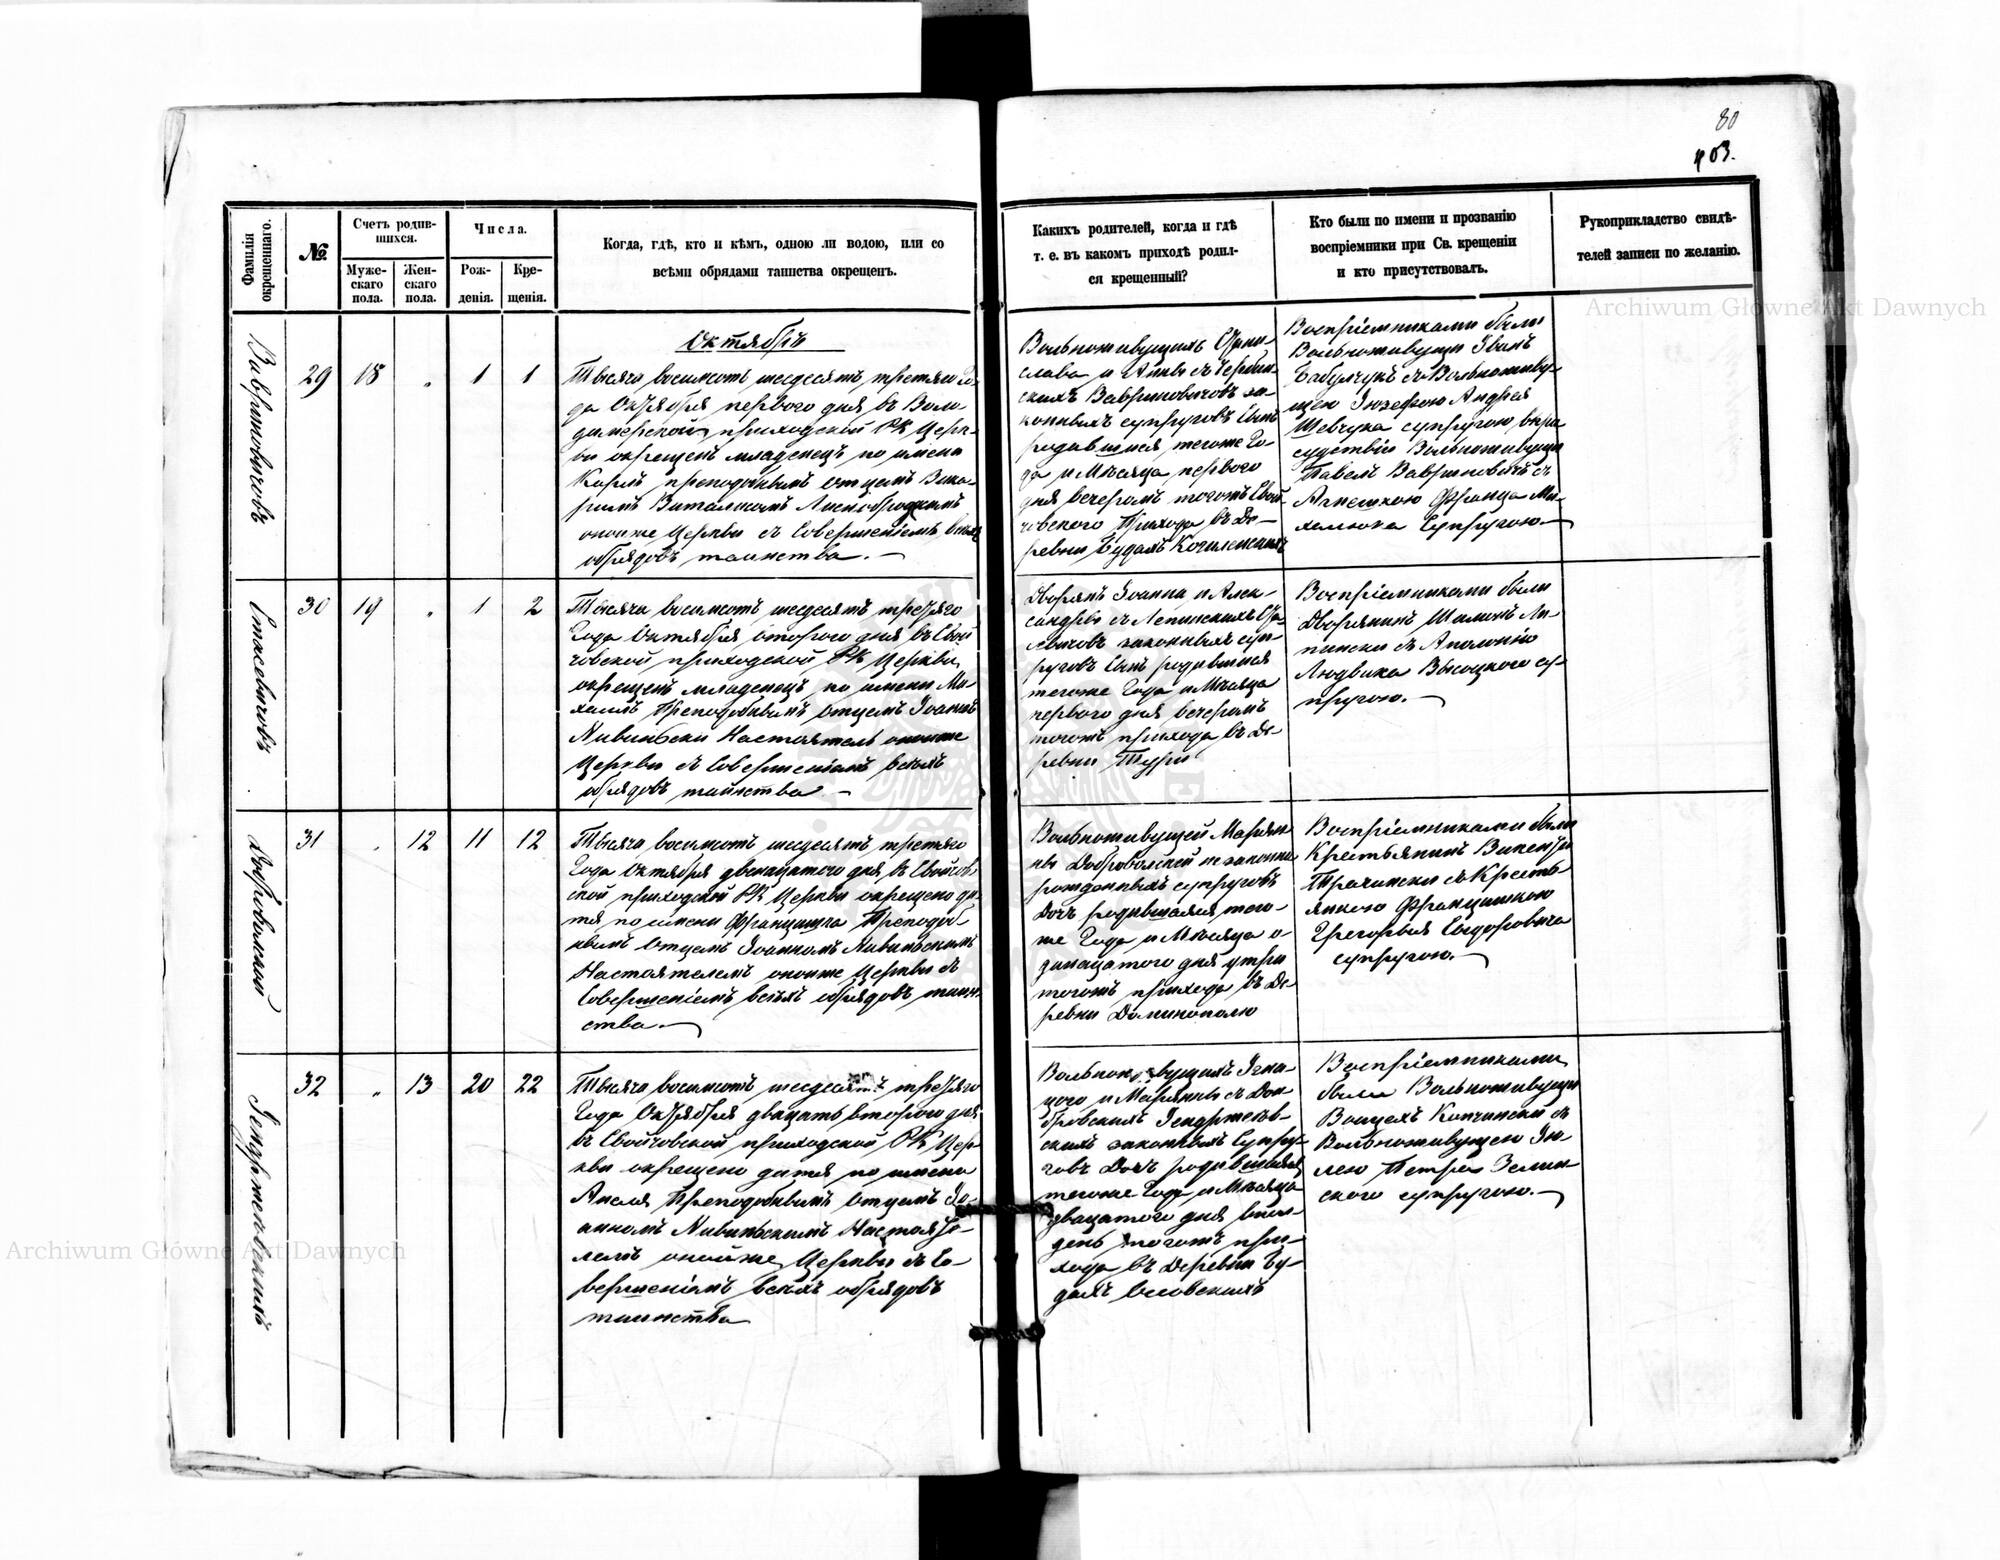 80
403.
Фамилія окрещеннаго.
№
Счетъ родив-
шихся.
Муже-
скаго
пола.
Жен-
скаго
пола.
Числа.
Рож-
денія.
Кре-
щенія.
Когда, гдѣ, кто и кѣмъ, одною ли водою, или со
всѣми обрядами таинства окрещенъ.
Какихъ родителей, когда и гдѣ
т. е. въ какомъ приходѣ родил-
ся крещенный?
Кто были по имени и прозванію
воспріемники при Св. крещеніи
и кто присутствовалъ.
Рукоприкладство свидѣ-
телей записи по желанію.
Archiwum Główne Akt Dawnych
Октябрь
Вавриновичовъ
29 18 „ 1 1
Тысяча восемсотъ шесдесятъ третяго Го-
да Октября первого дня въ Воло-
димерской приходской РК Церк-
ви окрещенъ младенецъ по имени
Кароль преподобнымъ Отцемъ Вика-
ріимъ Виталисомъ
оноиже Церкви съ Совершеніемъ всѣхъ
обрядовъ таинства.
Вольноживущихъ Стани-
слава и Анны съ
Вавриновичовъ за-
конныхъ супруговъ Сынъ
родившійся тогоже Го-
да и Мѣсяца первого
дня вечеромъ тогожъ Свой-
човского Прихода въ Де-
ревни Будахъ
Воспріемниками были
Вольноживущи Иванъ
съ Вольноживу-
щею Іюзефою Андрея
Шевчука супругою, въ при
судствіи Вольноживущи
Павелъ Вавриновичъ съ
Агнешкою Франца Ми-
халюка Супругою.
Стасевичовъ
30 19 „ 1 2
Тысяча восемсотъ шесдесятъ третяго
Года Октября второго дня въ Свой
човской приходской РК Церкви
окрещенъ младенецъ по имени Ми-
халъ Преподобнымъ Отцемъ Іоаномъ
Настоятель оноиже
Церкви съ Совершеніемъ всѣхъ
обрядовъ таинства
Дворянъ Іоанна и Алек-
сандры съ Лепинскихъ Ста-
севичовъ законныхъ суп-
руговъ Сынъ родившійся
тогоже Года и Мѣсяца
первого дня вечеромъ
тогожъ прихода въ Де-
ревни Туріи
Воспріемниками были
Дворянинъ Шимонъ Ли-
пински съ Аполонію
Людвика Высоцкого су-
пругою.
Добровольскій
31 „ 12 11 12
Тысяча восемсотъ шесдесятъ третяго
Года Октября двенацатого дня въ Свойчов-
ской приходской РК Церкви окрещено ди-
тя по имени Францишка Преподоб
нымъ Отцемъ Іоанномъ
Настоятелемъ оноиже Церкви съ
Совершеніемъ всѣхъ обрядовъ таин-
ства.
Вольноживущей Маріян
ны Добровольской незаконно
рожденныхъ супруговъ
Дочъ родившаяся того-
же Года и Мѣсяца о-
динацатого дня утра
тогожъ прихода въ Де-
ревни Доминополю
Воспріемниками были
Крестьянинъ Викентій
Трачински съ Кресть
янкою Францишкою
Григорія Сыдоровича
супругою.
32 „ 13 20 22
Тысяча восемсотъ шесдесятъ третяго
Года Октября двацать второго дня
въ Свойчовской приходской РК Цер-
кви окрещено дитя по имени
Анеля Преподобнымъ Отцемъ Іо-
анномъ Настояте-
лемъ оноиже Церкви съ Со-
вершеніемъ всѣхъ обрядовъ
таинства
Вольноживущихъ Игна-
цого и Маріянны съ Дом-
бровскихъ
законныхъ Супру-
говъ Дочъ родившаяся
тогоже Года и Мѣсяца
двацатого дня въ пол-
день тогожъ при-
хода въ Деревни Бу-
дахъ
Воспріемниками
были Вольноживущи
Войцехъ Копчинский съ
Вольноживущею Ju-
лею Петра Зелин-
ского супругою.
Archiwum Główne Akt Dawnych